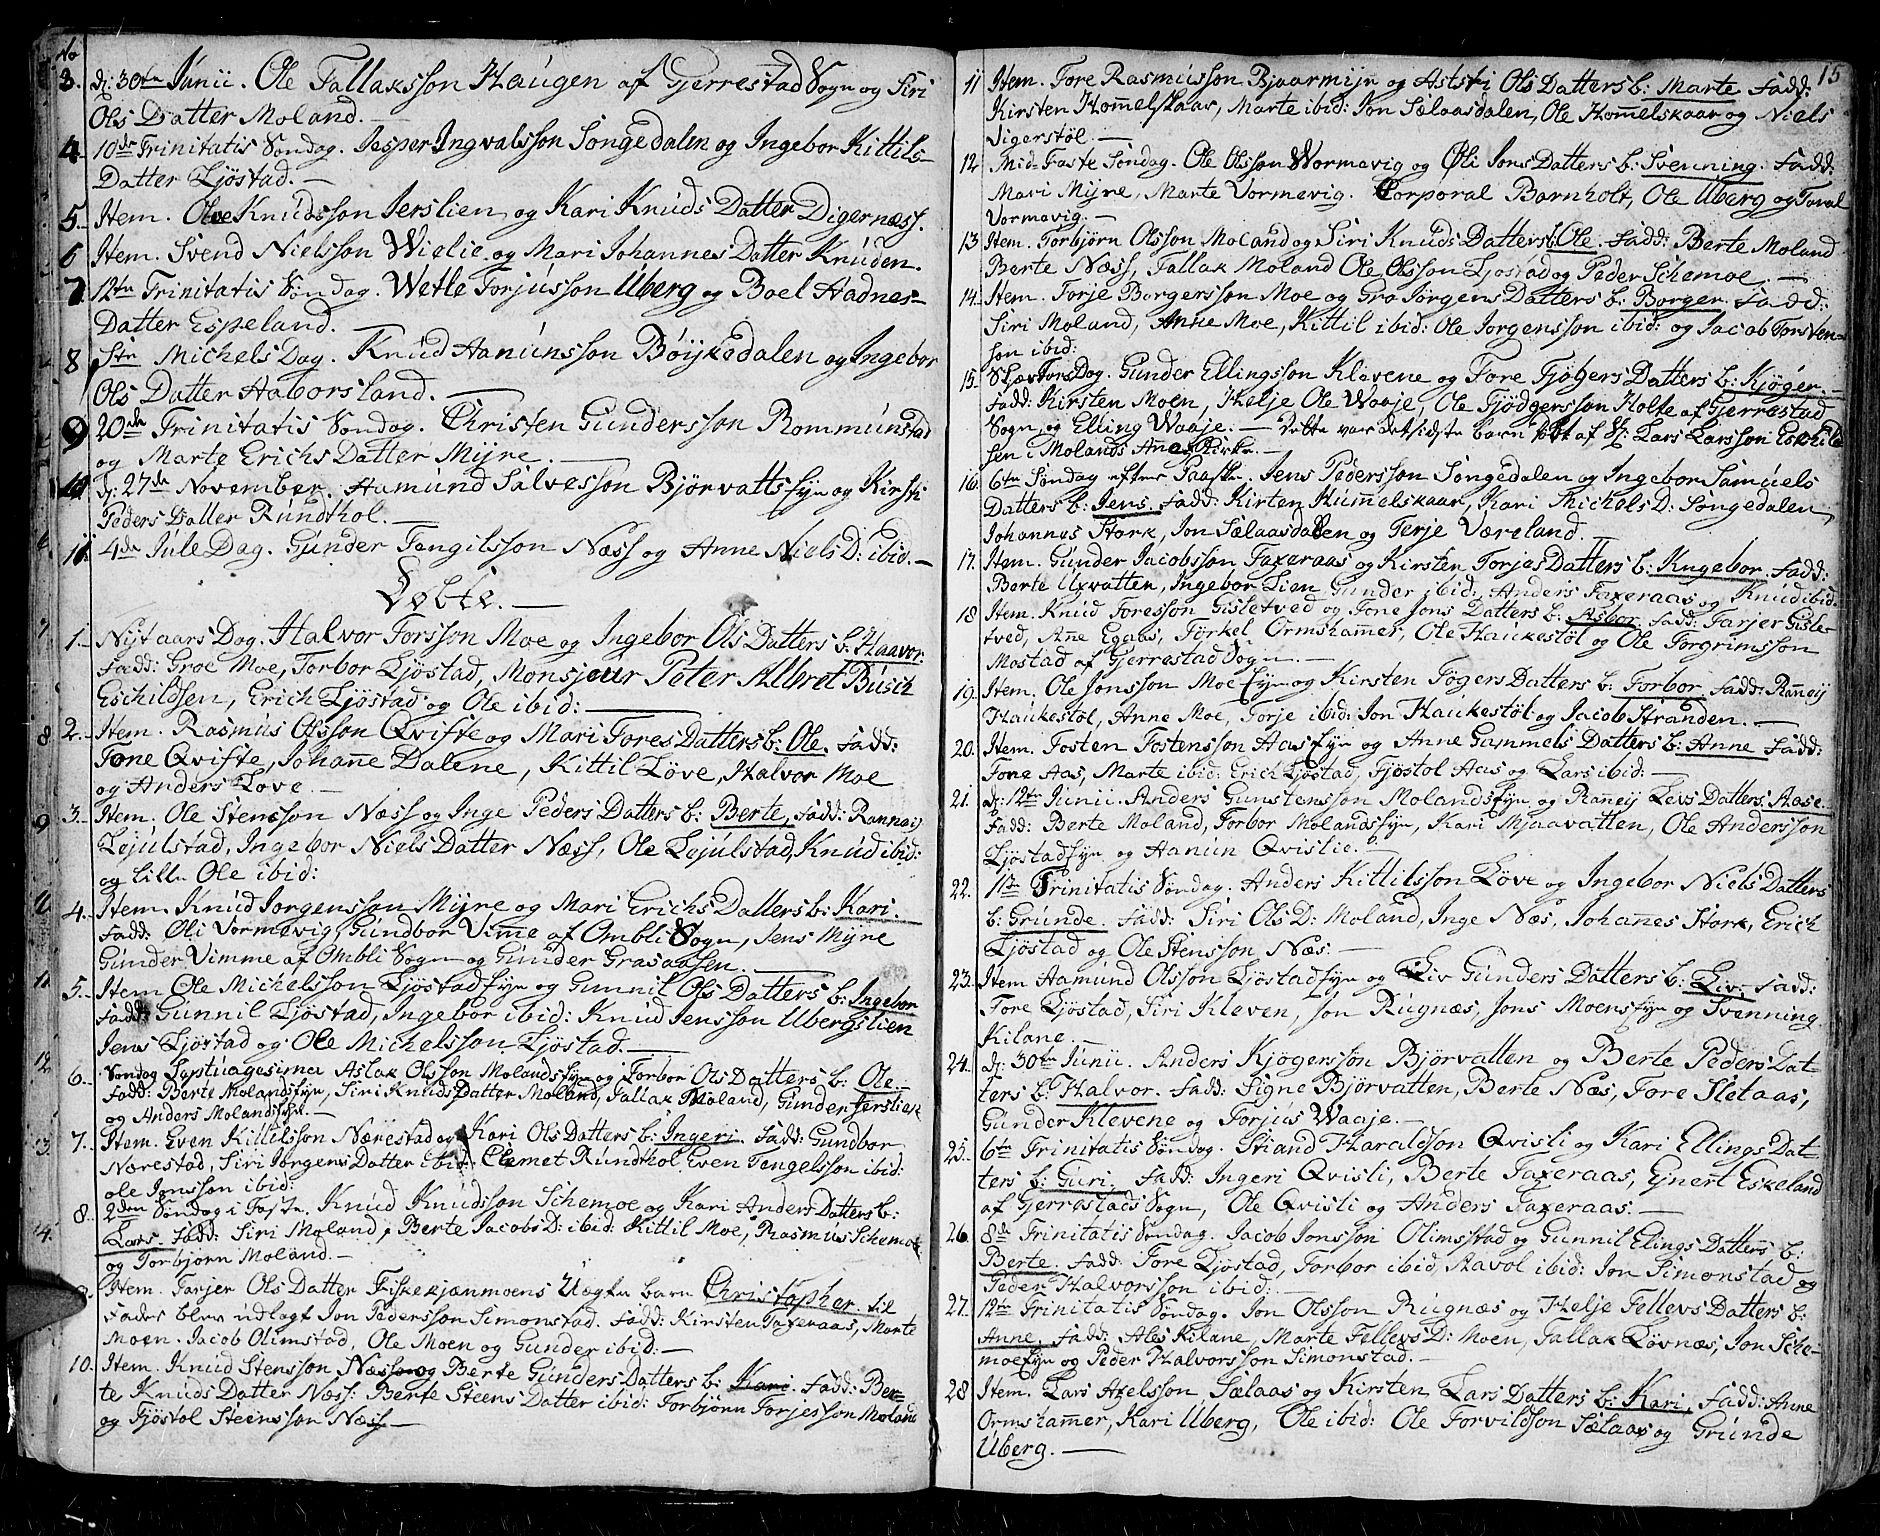 No
3. d: 30te Junii. Ole Fallaksson Haugen af Gjerrestad Sogn og Siri
Ols Datter Moland. —
4. 10de Trinitatis Søndag. Jesper Ingvalsson Songedalen og Ingebor Kittils-
Datter Ljøstad. —
5. Item. Ole Knudsson Jerslien og Kari Knuds Datter Digernæss.
6 Item. Svend Nielsson Wielie og Mari Johannes Datter Knuden.
7 12te Trinitatis Søndag. Wetle Torjusson Uberg og Boel Hadnes-
Datter Espeland. —
8 Ste Michels Dag. Knud Hanunsson Bøylsedalen og Ingebor
Ols Datter Haborsland. —
9 20de Trinitatis Søndag. Christen Gundersson Rommunstad
og Marte Erichs Datter Myre. —
10 d: 27de November. Aamund Salvesson Bjørvatts Eye og Kirsti
Peders Datter Rundthol. —
11. 4de Jule Dag. Gunder Tengilsson Næss og Anne Niels D: ibid. —
Døbte. —
1. Nyt aars Dog. Halvor Torsson Moe og Ingebor Ols Datters b: Haavor.
Fadd: Groe Moe, Torbor Ljøstad, Monsjour Peter Alleret Busch
Eschildsen, Erich Ljøstad og Ole ibid: —
2. Item. Rasmus Olsson Qviste og Mari Tores Datters b: Ole. Fadd:
Tone Qviste, Johanne Dalene, Kittil Løve, Halvor Moe
og Anders Løve. —
3. Item. Ole Stensson Næss og Inge Peders Datters b: Berte, Fadd: Rannei
Lejulstad, Ingebor Niels Datter Næss, Ole Lejulstad, Knud ibid:
og lille Ole ibid:
4. Item. Knud Jorgensson Myre og Mari Erichs Datters b: Kari.
Fadd: Oli Vormevig, Gundbor Vimme af Ombli Sogn, Jens Myre
Gunder Vimme af Ombli Sogn og Gunder Grasaasen. —
5. Item Ole Michelsson Ljøstad Eye og Gunnil Ols Datters b: Ingebor
Fadd: Gunnil Ljøstad, Ingebor ibid: Knud Jensson Ubergslien
Jens Ljøstad og Ole Michelsson Ljøstad. —
6. Søndag Septuagesima Aslak Olsson Molands Eye og Torbor Ols Datters b: Ole.
Fadd: Berte Molands Eye, Siri Knuds Datter Moland, Fallak Moland, Gunder Jerslien
og Anders Molands Eye. —
7. Item. Even Kittilsson Nærestad og Kari Ols Datters b: Ingeri. Fadd: Gundbor
Nærestad, Siri Jorgens Datter ibid: Clemet Rundthol, Even Tengelsson ibid:
ole Jonsson ibid:
8. 2den Søndag i Faste. Knud Knudsson Schemoe og Kari Anders Datters b:
Lars. Fadd: Siri Moland, Berte Jacobs D: ibid: Kittil Moe, Rasmus Schemoe
og Torbjørn Moland. —
9. Item. Tarjer Ols Datter Fiskekjænmoens Uægte barn Christopher. til
Fader blev udlagt Jon Pedersson Simonstad. Fadd: Kirsten Faxeraas, Marte
Moen. Jacob Olimstad, Ole Moen og Gunder ibid: —
10. Item. Knud Stensson Næss og Berte Gunders Datters b: Kari. Fadd: Ber-
te Knuds Datter Næss: Berte Steens Datter ibid: Torbjørn Torjesson Moland
og Tjøstol Steensson Næss —
15
11 Item. Tore Rasmusson Bjaarmyr og Astri Ols Datters b: Marte Fadd:
Kirsten Hommelskaar, Marte ibid: Jon Sælaasdalen, Ole Hommelskaar og Niels
Sigerstøl. —
12 Mid-Faste Søndag. Ole Olsson Wormevig og Øli Jons Datters b: Svenning. Fadd:
Mari Myre, Marte Vormevig. Corporal Barnholt, Ole Uberg og Taral
Vormevig. —
13 Item. Torbjørn Olsson Moland og Siri Knuds Datters b: Ole. Fadd: Berte Moland
Berte Næss, Fallak Moland Ole Olsson Ljøstad og Peder Schemoe. —
14. Item. Torje Borgersson Moe og Gro Jørgens Datters b: Borger. Fadd:
Siri Moland, Anne Moe, Kittil ibid: Ole Jorgensson ibid: og Jacob Torsven-
son ibid:
15. Skjærtors Dog. Gunder Ellingsson Klevene og Tore Tjøgers Datters b: Kjøger. —
Fadd: Kirsten Moen, Helje Ole Waaje, Ole Tjødgersson Holte af Gjerrestad
Sogn, og Elling Waaje. — Dette var det sidste barn døbt af Hr: Lars Larsson Eschild-
sen i Molands Annex Kirke. —
16. 6te Søndag efter Paaske. Jens Pedersson Songedalen og Ingebor Samuels
Datters b: Jens. Fadd: Kirten Hummelskaar, Kari Michels D: Songedalen,
Johannes Stork, Jon Sælaasdalen og Terje Væreland. —
17. Item. Gunder Jacobsson Faxeraas og Kirsten Torjes Datters b: Kngebor. Fadd:
Berte Uxvatten, Ingebor Lien Gunder ibid: Anders Faxeraas og Knud ibid.
18 Item. Knud Toresson Gisletved og Tone Jons Datters b: Asbor. Fadd: Tarjer Gisle-
tved, Anne Egaas, Torkel Ormshammer, Ole Haukestøl og Ole Torgrimsson
Mostad af Gjerrestad Sogn. —
19. Item. Ole Jonsson Moe Eye og Kirsten Togers Datters b: Torbor. Fadd: Ranney
Haukestøl, Anne Moe, Torje ibid: Jon Haukestøl og Jacob Stranden. —
20. Item. Tosten Tostensson Aas Eye og Anne Gammels Datters b: Anne Fadd:
Tone Aas, Marte ibid: Erich Ljøstad, Tjøstol Aas og Lars ibid: —
21. d: 12te Junii. Anders Gunstensson Molands Eye og Raney Levs Datters Aase.
Fadd: Berte Moland, Torbor Molands Eye, Kari Mjaavatten, Ole Andersson
Ljøstad Eye og Hanun Qvislie. —
22. 113te Trinitatis Søndag. Anders Kittilsson Løve og Ingebor Niels Datters
b: Grunde. Fadd: Siri Ols D: Moland, Inge Næs, Johannes Stork, Erich
Ljøstad og Ole Stensson Næs. —
23. Item Aamund Olsson Ljøstad Eye og Liv Gunders Datters b: Liv: Fadd:
Tore Ljøstad, Siri Kleven, Jon Rugnæs, Jons Moens Eye og Svenning
Kilane. —
24. d: 30te Junii. Anders Kjøgersson Bjørvatten og Berte Peders Dat-
ters b: Halvor. Fadd: Signe Bjørvatten, Berte Næs, Tore Sletaas,
Gunder Klevene og Torjus Waaje. —
25. 6te Trinitatis Søndag. Strand Haraldsson Qvisli og Kari Ellings Dat-
ters b: Guri. Fadd: Ingeri Qvisli, Berte Faxeraas, Ejnert Eskeland
af Gjerrestads Sogn, Ole Qvisli og Anders Faxeraas. —
26. 8de Trinitatis Søndag. Jacob Jonsson Olimsstad og Gunnil Elings Datters b:
Berte. Fadd: Tore Ljøstad, Torbor ibid, Aavol ibid: Jon Simonstad og
Peder Halvorsson ibid: —
27. 12te Trinitatis Søndag. Jon Olsson Rugnæs og Helje Fellevs Datters b:
Anne. Fadd: Ales Kilane, Marte Fellevs D: Moen, Fallak Løvnæs, Jon Sche-
moe Eye og Peder Halvorsson Simonstad. —
28 Item. Lars Axelsson Sælaas og Kirsten Lars Datters b: Kari, Fadd: Anne
Ormshammer, Kari Uberg, Ole ibid: Ole Torvildsson Sælaas og Grunde
Uberg. —